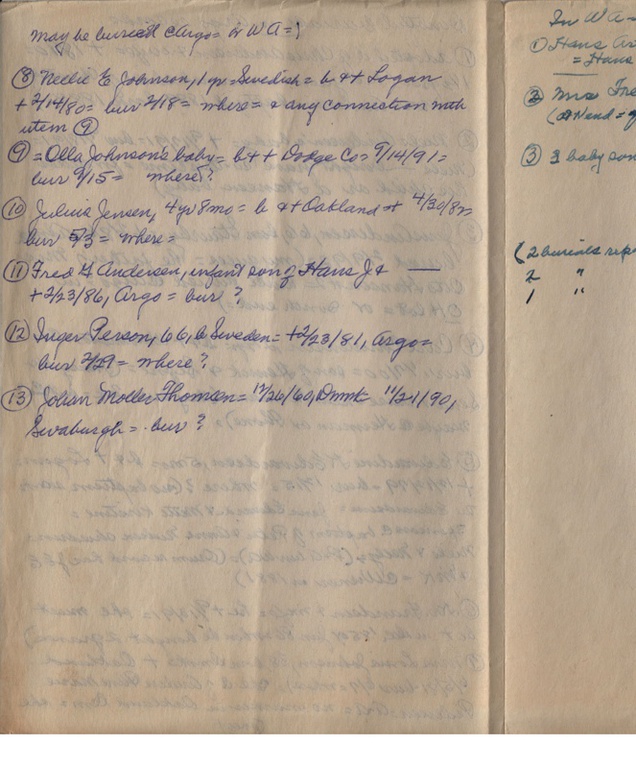 may be buried Argo= or WA=?
⑧ Nellie E Johnson, 1 yr= Swedish= b ++ Logan
+ 2/14/80= bur 2/18= where= & any connection with
item ⑨
⑨ = Olla Johnson's baby= b++ Dodge Co= 9/14/91=
bur 9/15= where?
⑩ Julius Jensen, 4 yr 8 mo= b &+ Oakland + 4/30/8
bur 5/3= where=
⑪ Fred H Andersen, infant son of Hans J & —
+ 2/23/86, Argo= bur ?
⑫ Inger Person, 66, b Sweden= + 2/23/81, Argo=
bur 2/29= where?
⑬ Johan Moller Thomsen= 12/26/60, Dnmk 11/21/90,
Swaburgh= bur ?
In WA=
① Hans An
= Hans
② Mrs Fre
③ 3 baby son
(2 burials rep
2 "
1 "